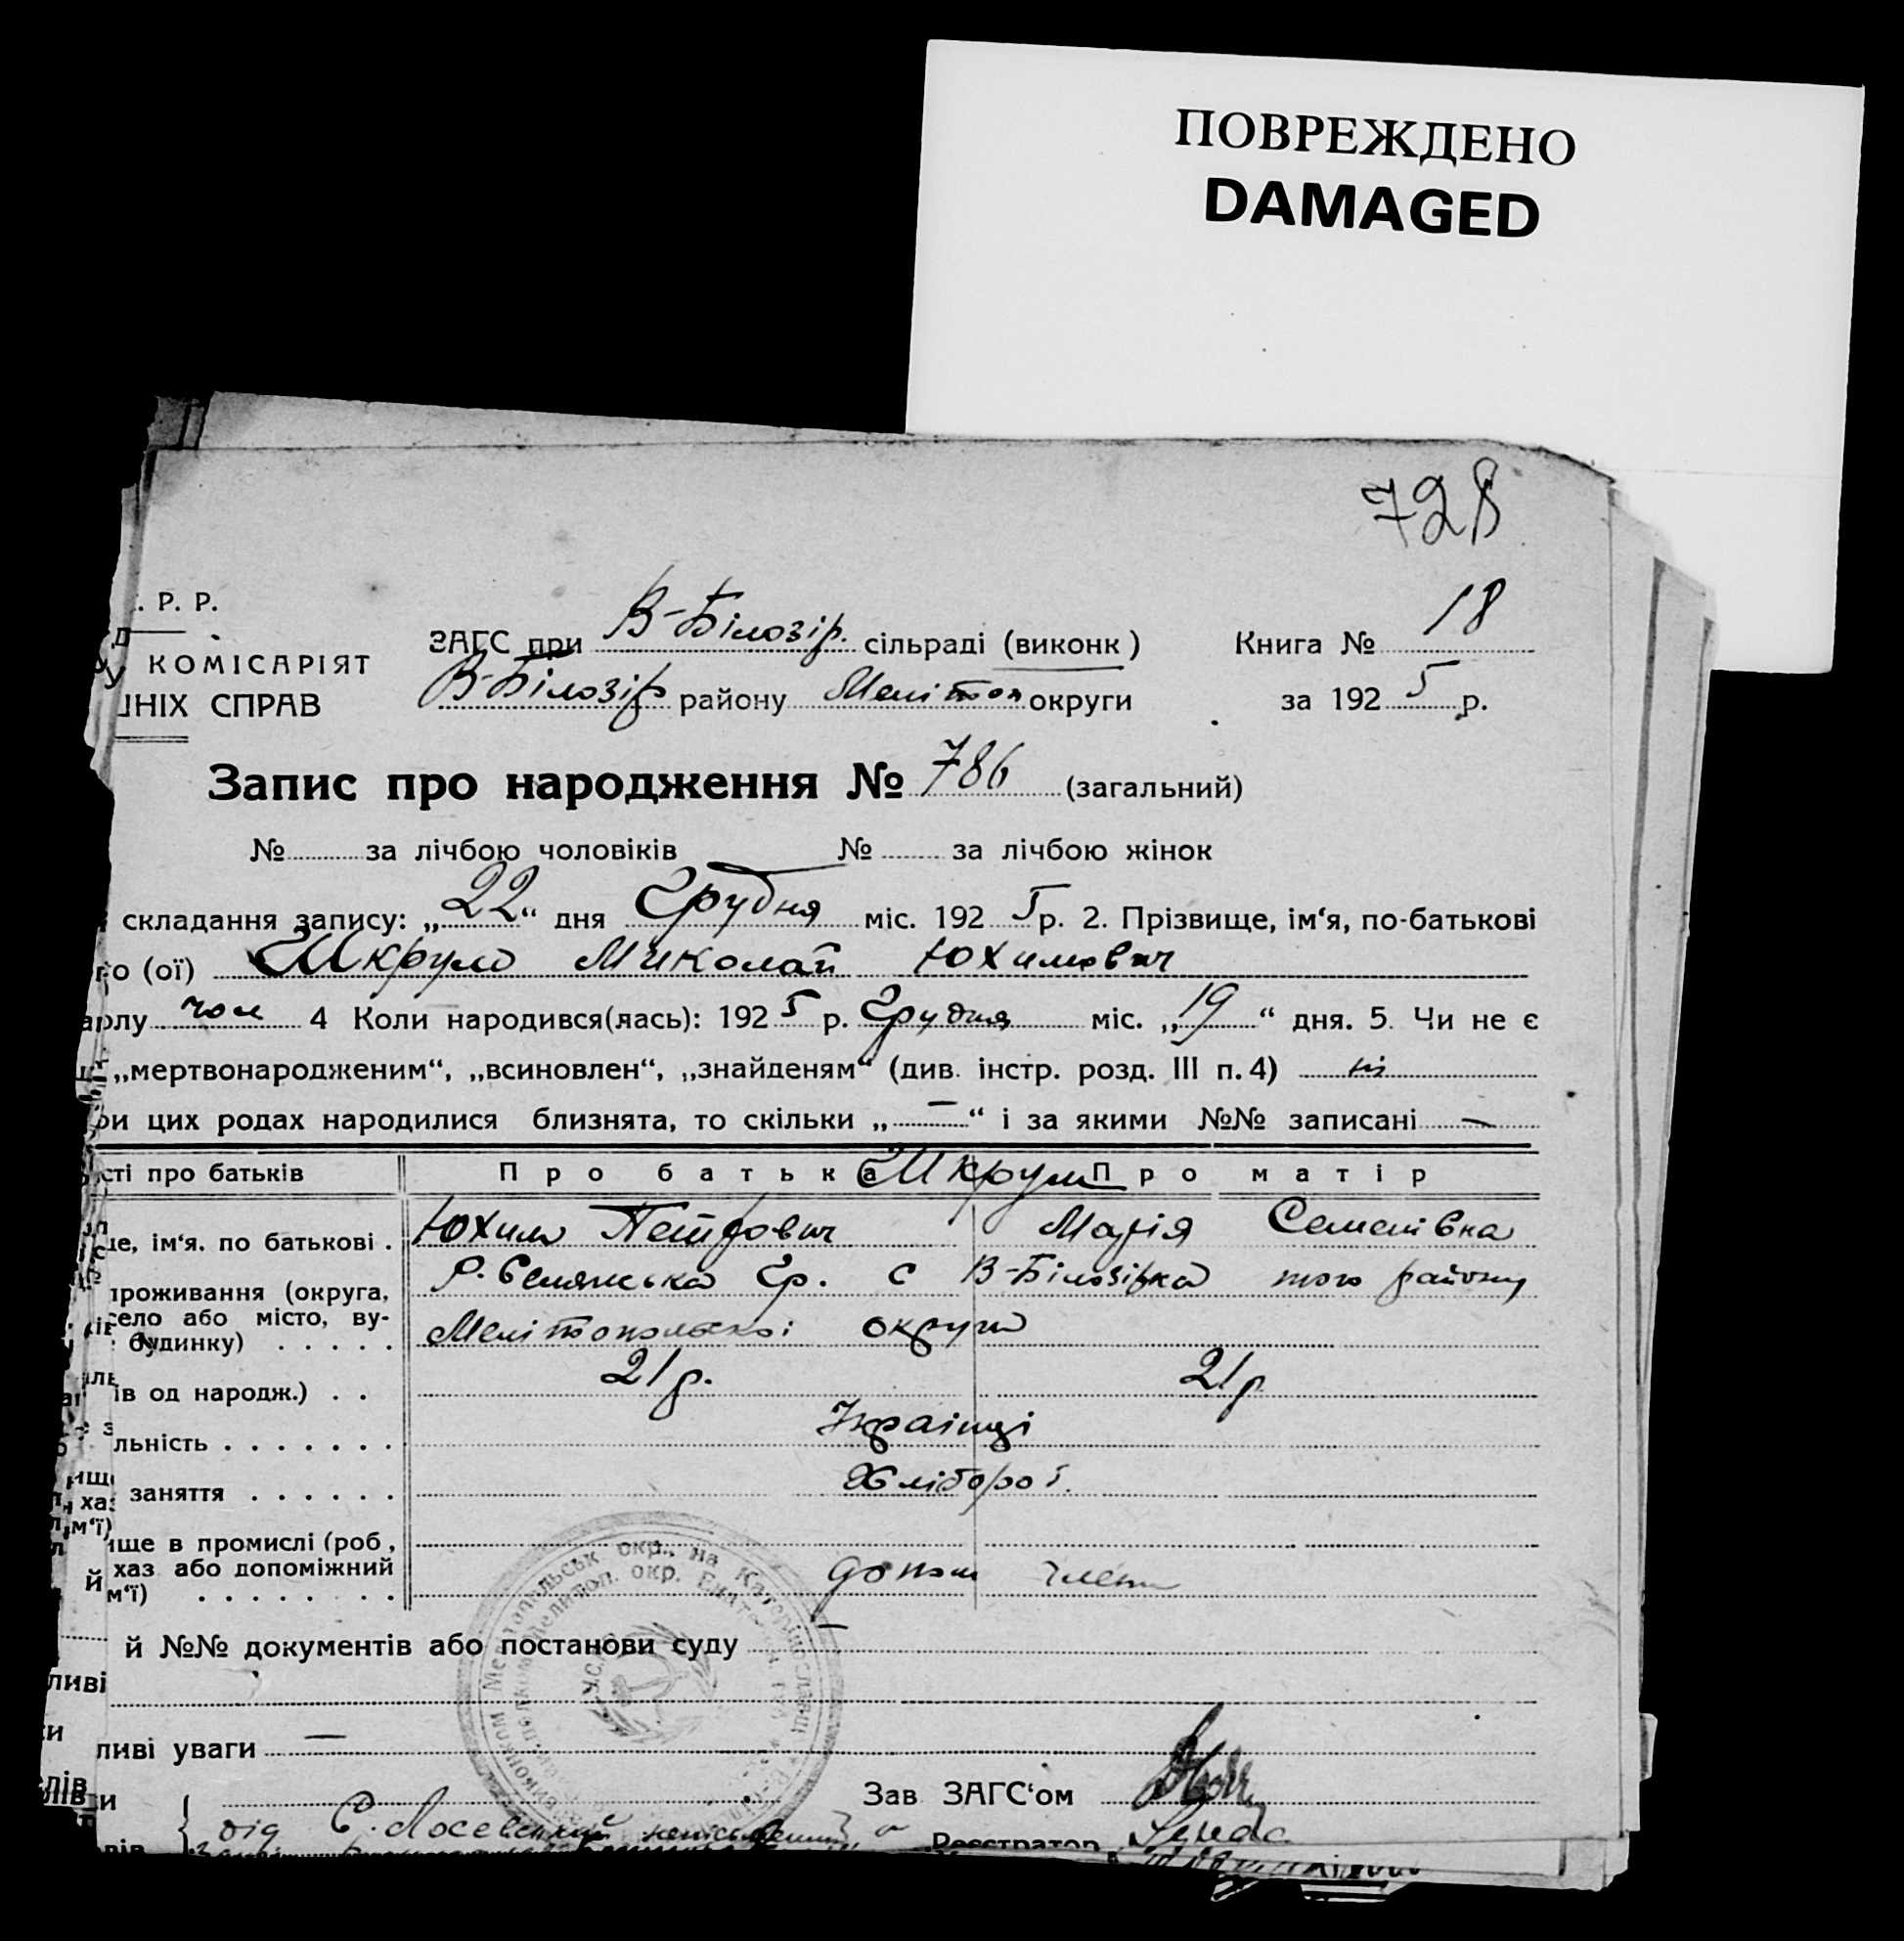 ПОВРЕЖДЕНО
DAMAGED
728
. Р. Р.
ЗАГС при В-Білозір. сільраді (виконк) Книга № 18
КОМІСАРІЯТ
В-Білозір району Меліто­п округи за 1925 р.
ШНІХ СПРАВ
Запис про народження № 786 (загальний)
№ за лічбою чоловіків № за лічбою жінок
складання запису: „22“ дня Грудня міс. 1925 р. 2. Прізвище, ім‘я, по-батькові
го (ої) Шкрум Миколай Юхимович
арлу чол 4 Коли народився(лась): 1925 р. Грудня міс. „19“ дня. 5. Чи не є
„мертвонародженим“, „всиновлен“, „знайденям“ (див. інстр. розд. III п. 4) ні
ри цих родах народилися близнята, то скільки „—“ і за якими №№ записані —
сті про батьків Про батька Шкрум Про матір
ще, ім‘я. по батькові . Юхим Петрович Марія Семенівна
проживання (округа, Р. Селянська Гр. с В-Білозірка того району
село або місто, ву-
будинку) . . . . . Мелітопольської округи
ів од народж.) . . 21 р. 21 р
льність . . . . . . . Українці
заняття . . . . . . Хлібороб.
ище в промислі (роб,
хаз або допоміжний допом члени
м‘ї) . . . . . . . .
й №№ документів або постанови суду —
ливі
ливі уваги —
Зав ЗАГС‘ом
від Є. Лосевський
Реєстратор